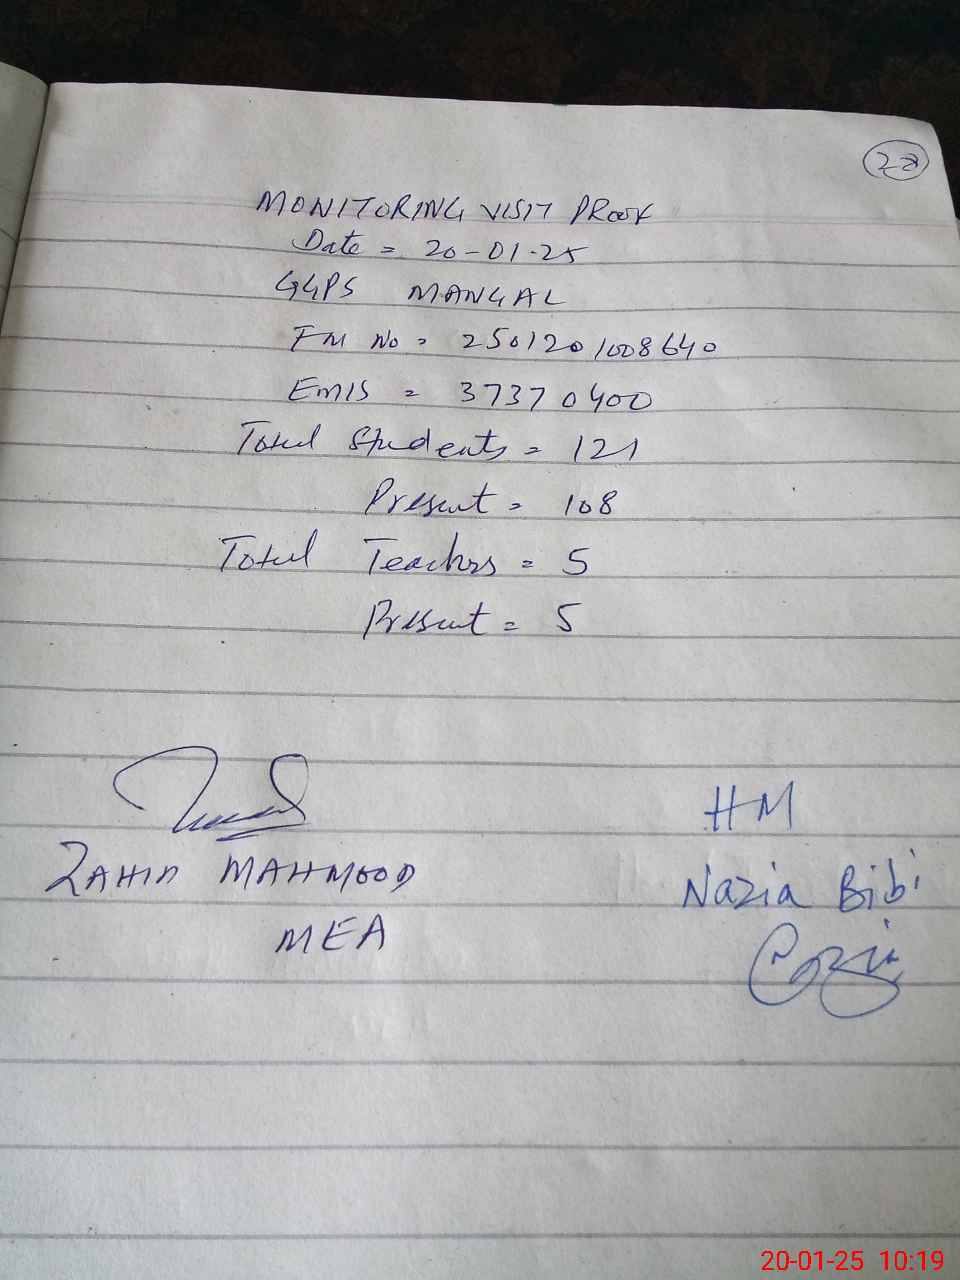 22
MONITORING VISIT PROOF
Date = 20-01-25
GGPS MANGAL
FM No = 2501201008640
EMIS = 37370400
Total Students = 121
Present = 108
Total Teachers = 5
Present = 5
HM
ZAHID MAHMOOD
Nazia Bibi
MEA
20-01-25 10:19